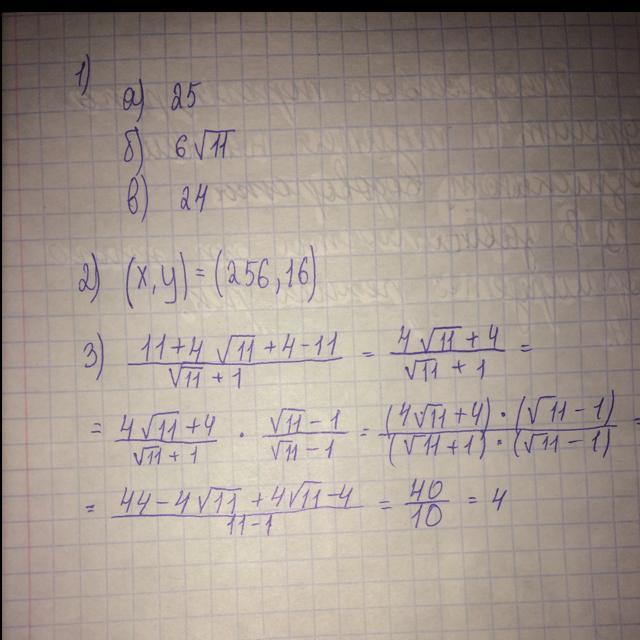 1)
а) 25
б) 6√11
в) 24
2) (x,y)=(256,16)
3) (11+4√11+4-11)/(√11+1) = (4√11+4)/(√11+1) =
= (4√11+4)/(√11+1) · (√11-1)/(√11-1) = ((4√11+4)·(√11-1))/((√11+1)·(√11-1)) =
= (44-4√11+4√11-4)/(11-1) = 40/10 = 4